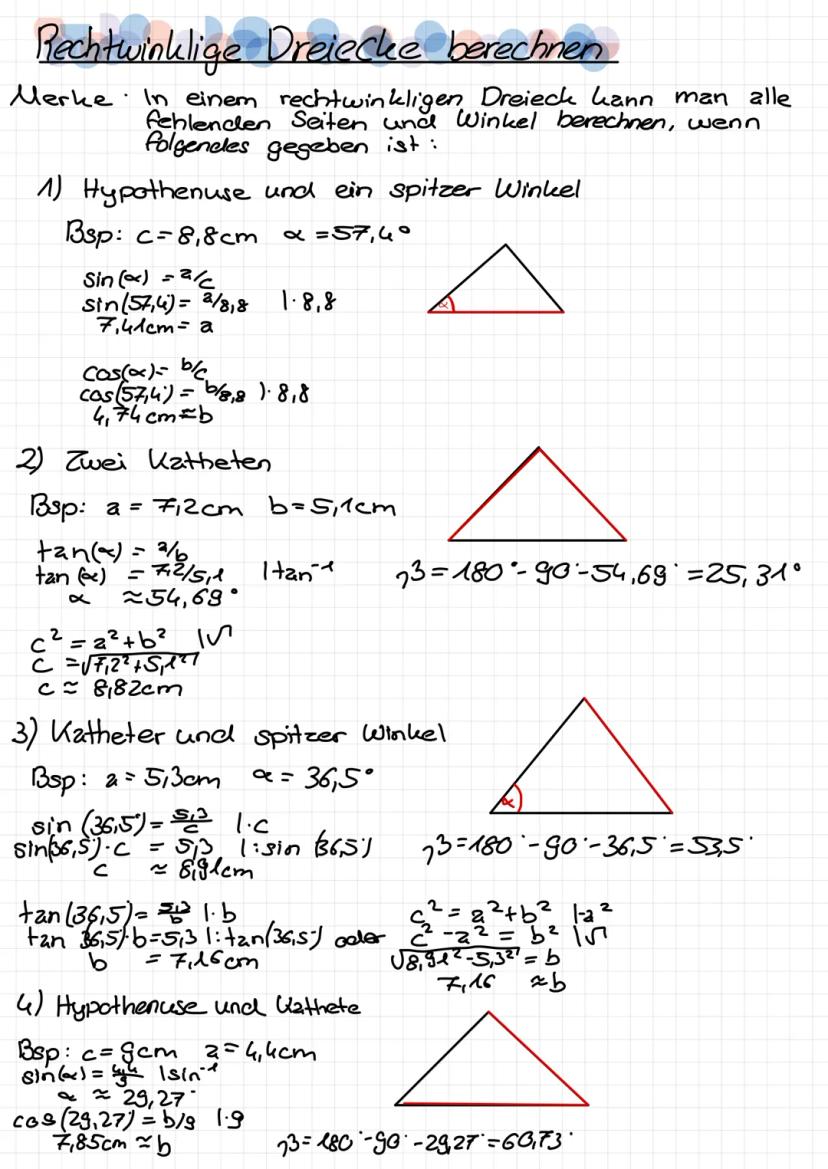 Rechtwinklige Dreiecke berechnen
Merke: In einem rechtwinkligen Dreieck kann man alle
fehlenden Seiten und Winkel berechnen, wenn
folgendes gegeben ist:
1) Hypothenuse und ein spitzer Winkel
Bsp: c = 8,8cm α = 57,4°
sin(α) = a/c
sin(57,4) = a/8,8 |·8,8
7,41cm = a
α
cos(α) = b/c
cos(57,4) = b/8,8 |·8,8
4,74cm ≈ b
2) Zwei Katheten
Bsp: a = 7,2cm b = 5,1cm
tan(α) = a/b
tan(α) = 7,2/5,1 |tan⁻¹
α ≈ 54,69°
β = 180° - 90° - 54,69° = 25,31°
c² = a² + b² |√
c = √7,2² + 5,1²
c ≈ 8,82cm
3) Katheter und spitzer Winkel
Bsp: a = 5,3cm α = 36,5°
α
sin(36,5°) = 5,3/c |·c
sin(36,5°)·c = 5,3 |:sin(36,5°)
c ≈ 8,91cm
β = 180° - 90° - 36,5° = 53,5°
tan(36,5) = 5,3/b |·b
tan 36,5)·b = 5,3 |:tan(36,5°) oder
b = 7,16cm
c² = a² + b² |-a²
c² - a² = b² |√
√8,91² - 5,3² = b
7,16 ≈ b
4) Hypothenuse und Kathete
Bsp: c = 9cm a = 4,4cm
sin(α) = 4,4/9 |sin⁻¹
α ≈ 29,27°
cos(29,27) = b/9 |·9
7,85cm ≈ b
β = 180° - 90° - 29,27° = 60,73°